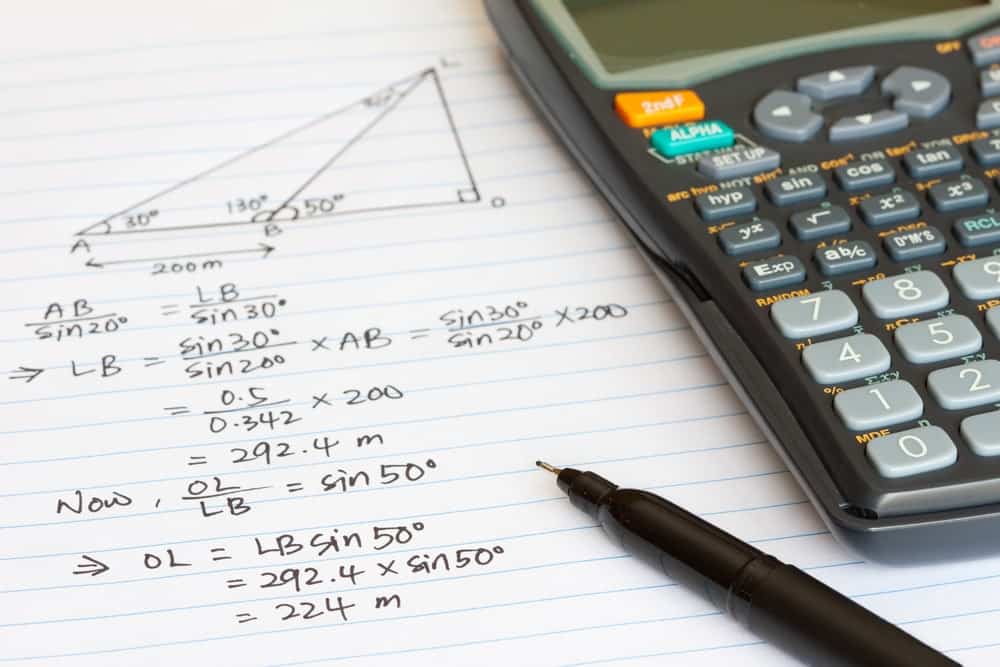 L
20°
30°
130°
50°
A
B
O
200m
AB/sin20° = LB/sin30°
⇒ LB = sin30°/sin20° × AB = sin30°/sin20° × 200
= 0.5/0.342 × 200
= 292.4 m
Now, OL/LB = sin50°
⇒ OL = LB sin50°
= 292.4 × sin50°
= 224 m
OFF
2ndF
ALPHA
SET UP
arc hyp NOT sin⁻¹ AND cos⁻¹ OR tan⁻¹
hyp sin cos tan
yˣ √ x² x³
Exp ab/c D°M'S RCL
RANDOM
7 8 9
4 5
1 2
MDF
0